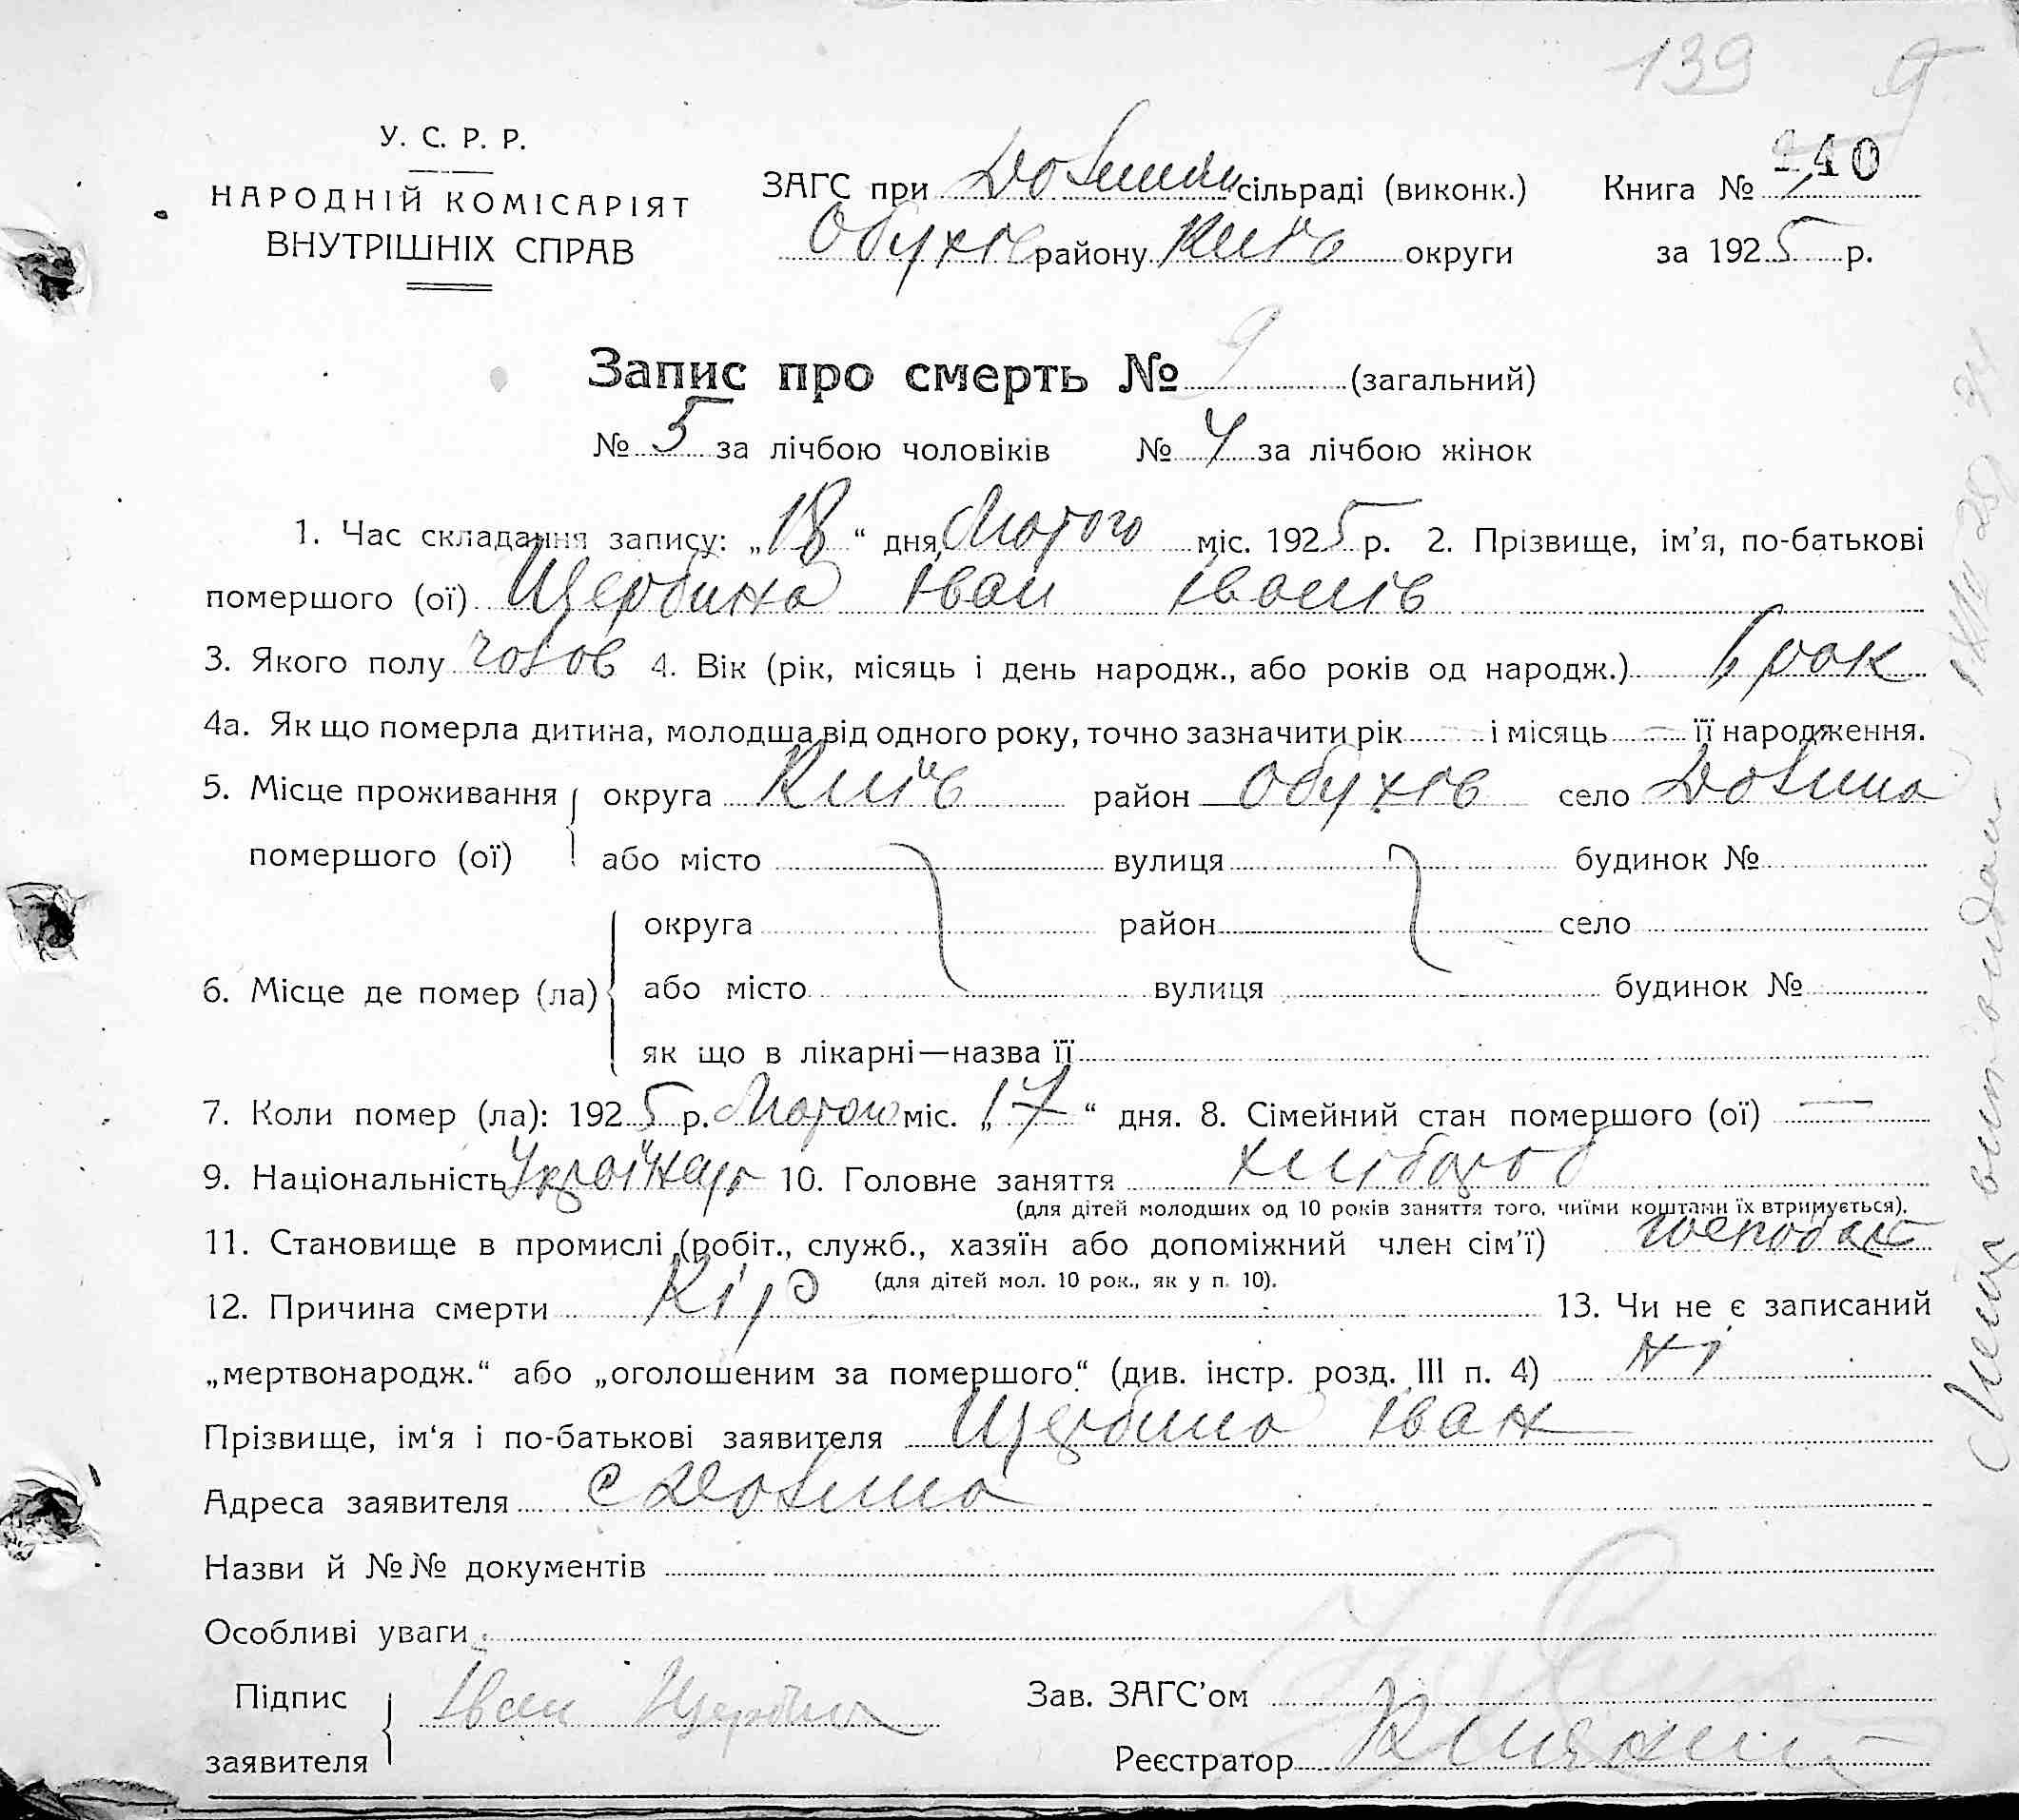 139 9
У. С. Р. Р.
НАРОДНІЙ КОМІСАРІЯТ
ВНУТРІШНІХ СПРАВ
ЗАГС при Долинян сільраді (виконк.)
Обухів району Київ округи
Книга № 140
за 1925 р.
Запис про смерть № 9 (загальний)
№ 5 за лічбою чоловіків № 4 за лічбою жінок
1. Час складання запису: „18“ дня Лютого міс. 1925 р. 2. Прізвище, ім’я, по-батькові
помершого (ої) Щербина Іван Іванів
3. Якого полу чолов 4. Вік (рік, місяць і день народж., або років од народж.) 1 рок
4а. Як що померла дитина, молодша від одного року, точно зазначити рік — і місяць — її народження.
5. Місце проживання округа Київ район Обухів село Долина
помершого (ої) або місто вулиця будинок №
округа район село
6. Місце де помер (ла) або місто вулиця будинок №
як що в лікарні—назва її
7. Коли помер (ла): 1925 р. Лютого міс. „17“ дня. 8. Сімейний стан помершого (ої) —
9. Національність 10. Головне заняття хлібороб
(для дітей молодших од 10 років заняття того, чиїми коштами їх втримується).
11. Становище в промислі (робіт., служб., хазяїн або допоміжний член сім’ї)
(для дітей мол. 10 рок., як у п. 10).
12. Причина смерти Кір 13. Чи не є записаний
„мертвонародж.“ або „оголошеним за помершого“ (див. інстр. розд. III п. 4) Ні
Прізвище, ім‘я і по-батькові заявителя Щербина Іван
Адреса заявителя с Долина
Назви й №№ документів
Особливі уваги
Підпис Іван Щербина Зав. ЗАГС’ом
заявителя Реєстратор